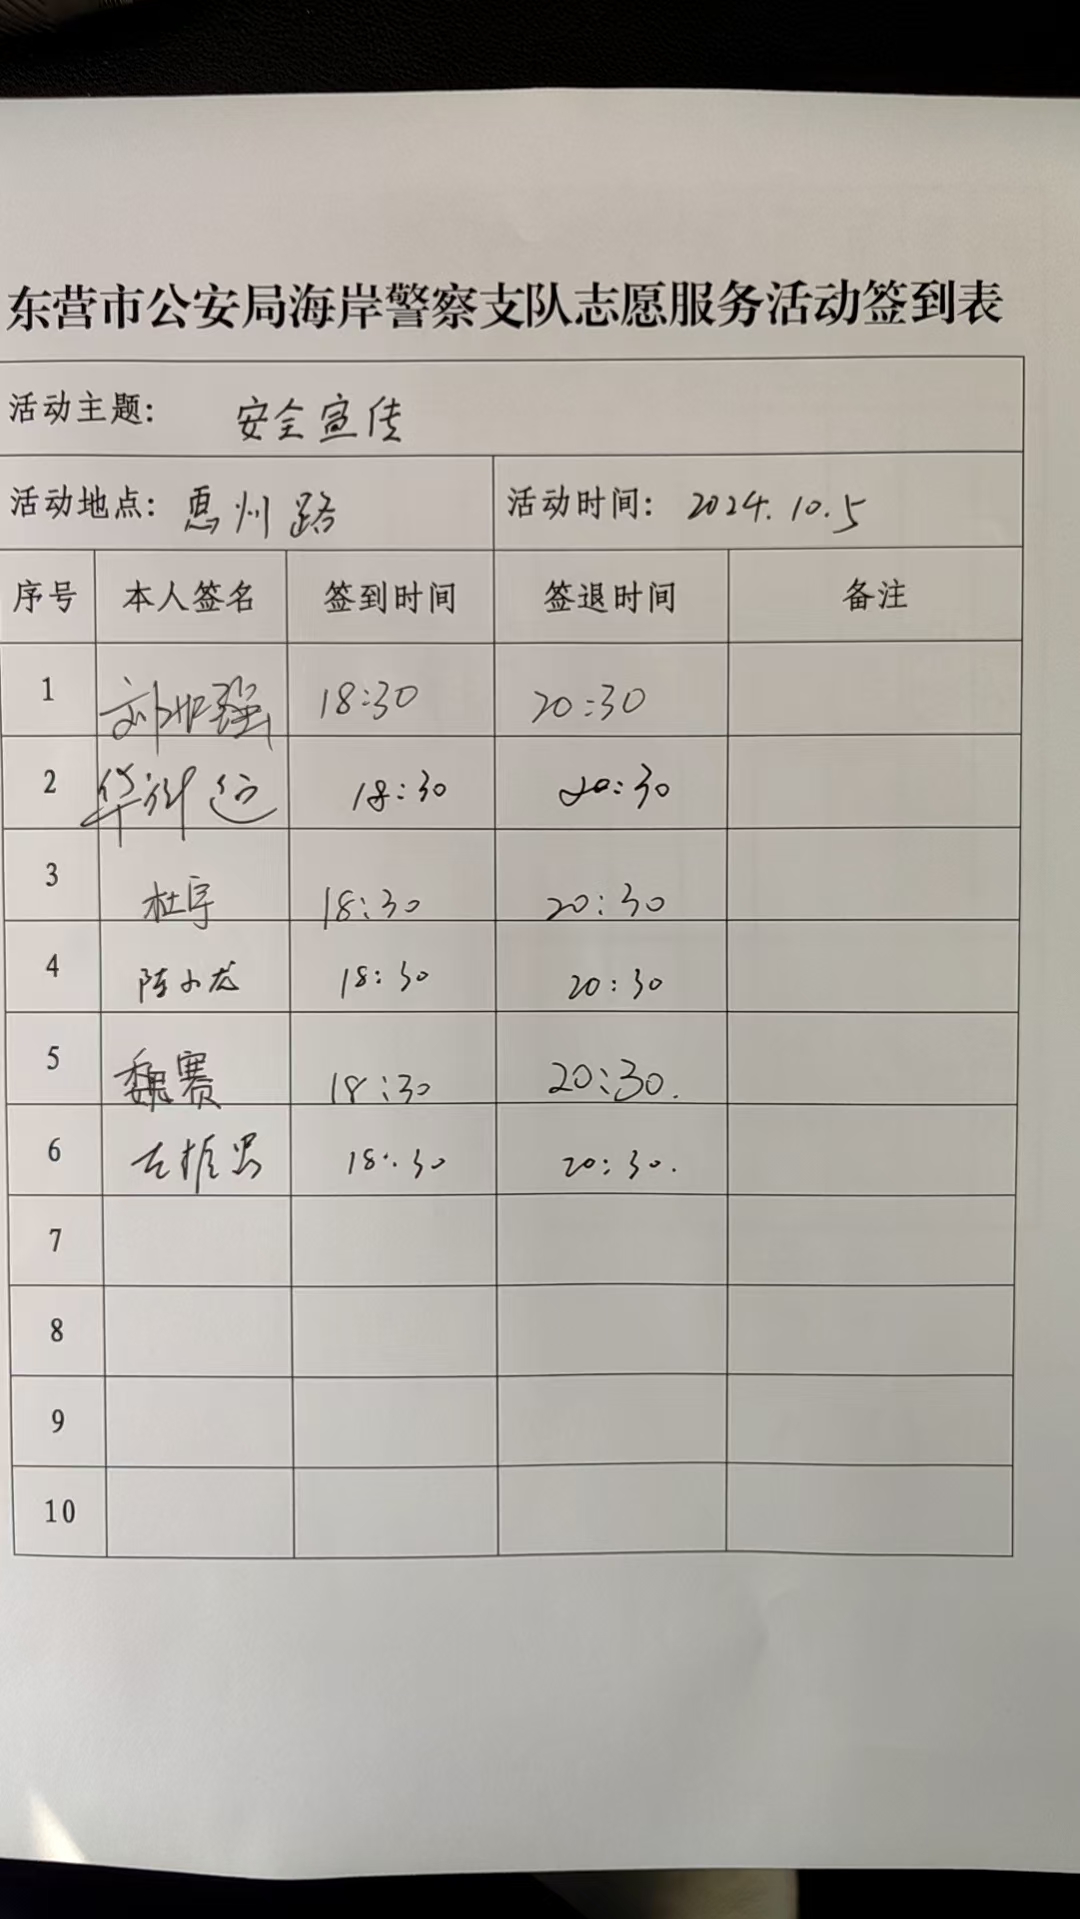 东营市公安局海岸警察支队志愿服务活动签到表
活动主题: 安全宣传
活动地点: 惠州路 活动时间: 2024.10.5
序号 本人签名 签到时间 签退时间 备注
1 18:30 20:30
2 18:30 20:30
3 杜宇 18:30 20:30
4 陈小龙 18:30 20:30
5 魏赛 18:30 20:30.
6 18:30 20:30.
7
8
9
10